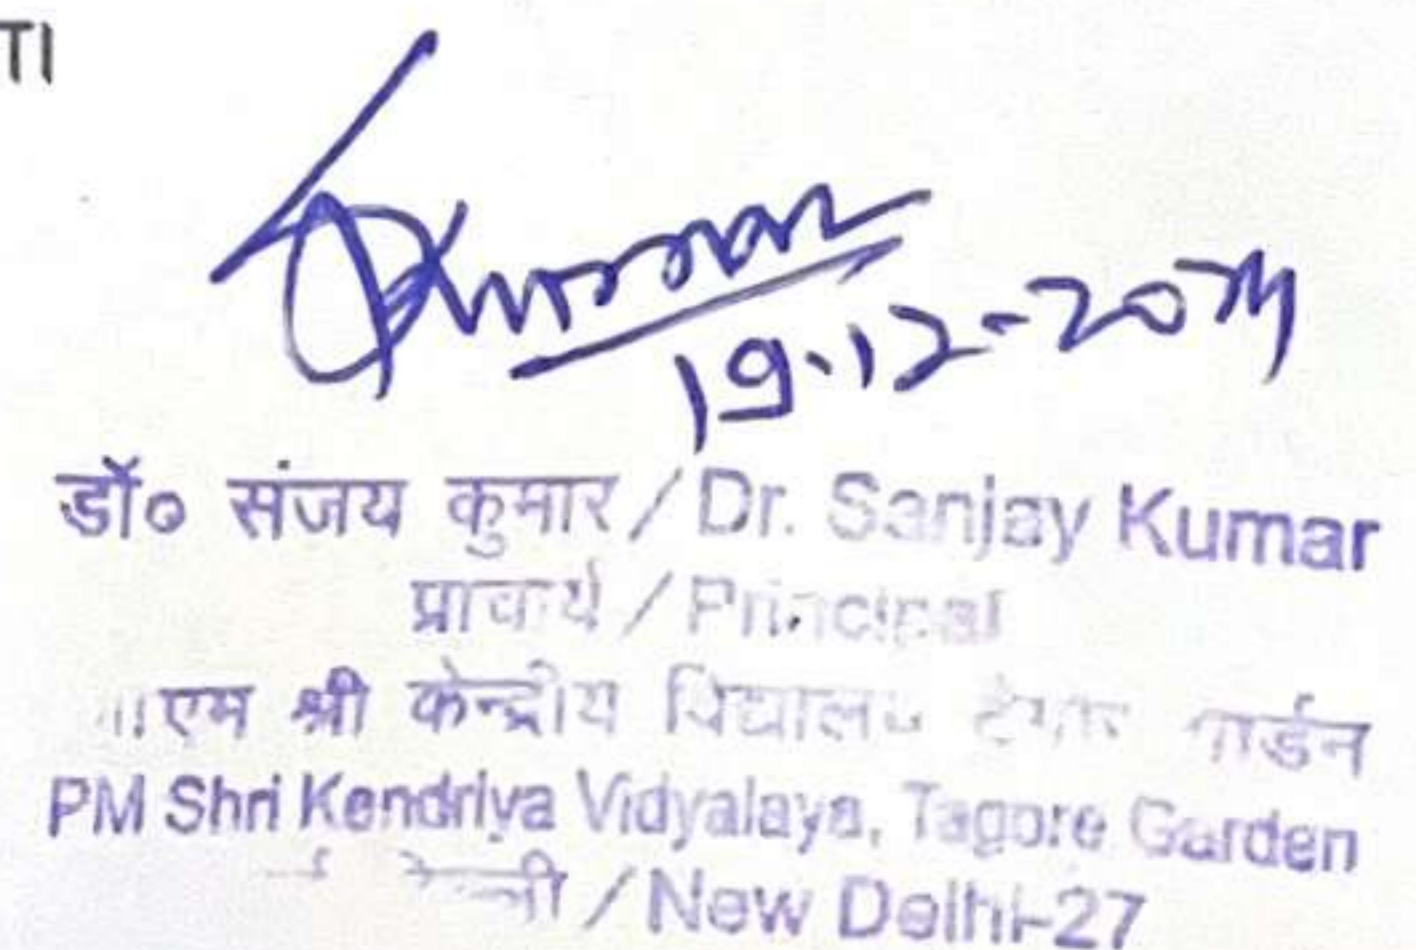 TI
19.12-2024
डॉ० संजय कुमार / Dr. Sanjay Kumar
प्राचार्य / Principal
एम श्री केन्द्रीय विद्यालय टैगोर गार्डन
PM Shri Kendriya Vidyalaya, Tagore Garden
/ New Delhi-27